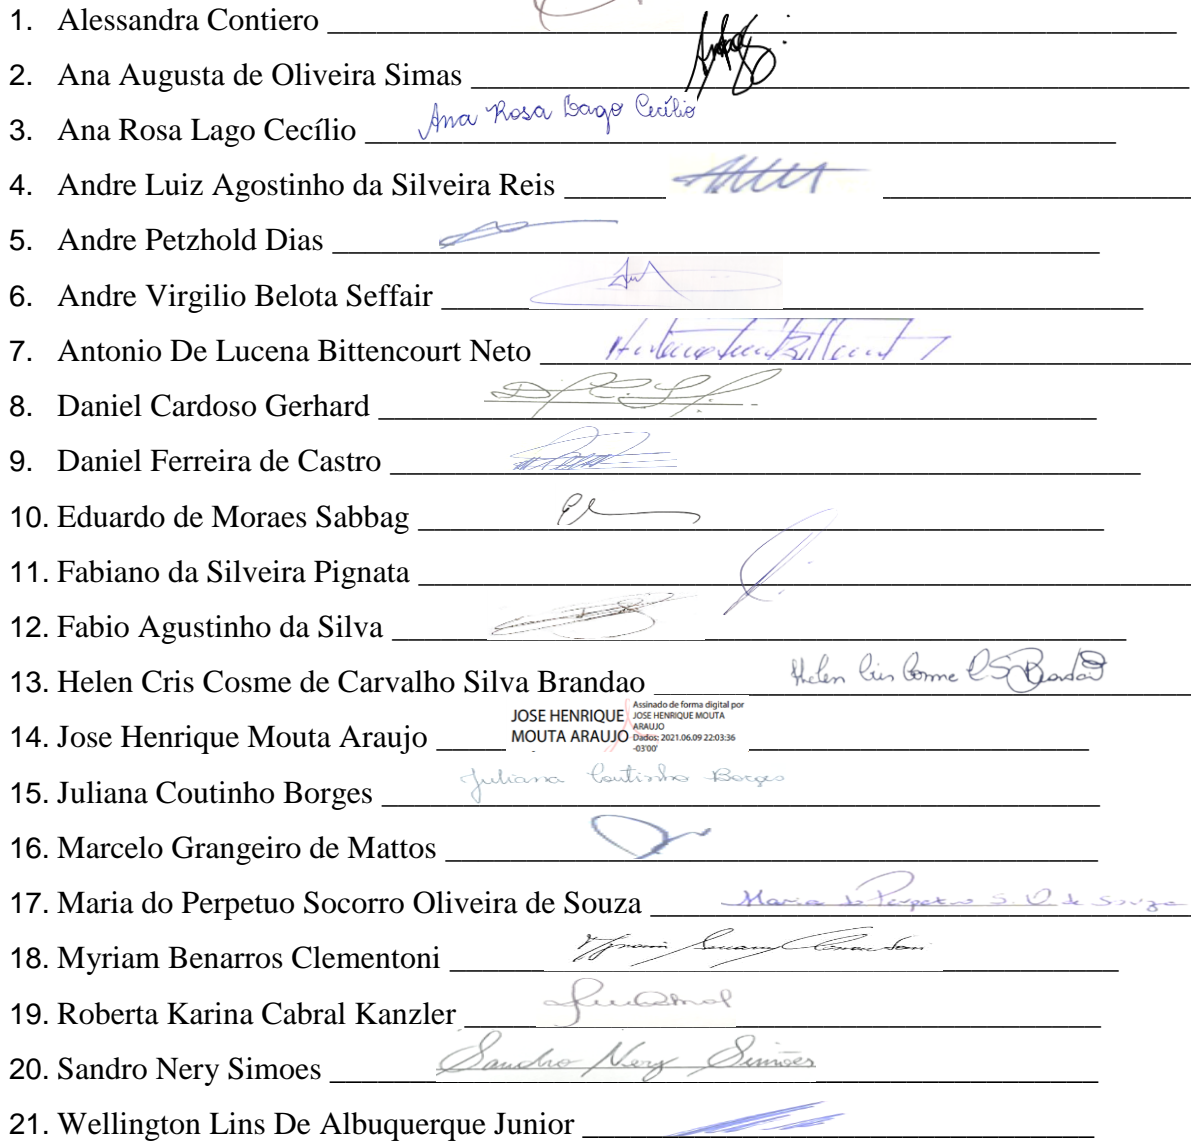 1. Alessandra Contiero
2. Ana Augusta de Oliveira Simas
3. Ana Rosa Lago Cecílio Ana Rosa Lago Cecílio
4. Andre Luiz Agostinho da Silveira Reis
5. Andre Petzhold Dias
6. Andre Virgilio Belota Seffair
7. Antonio De Lucena Bittencourt Neto
8. Daniel Cardoso Gerhard
9. Daniel Ferreira de Castro
10. Eduardo de Moraes Sabbag
11. Fabiano da Silveira Pignata
12. Fabio Agustinho da Silva
13. Helen Cris Cosme de Carvalho Silva Brandao Helen Cris Cosme C S Brandão
14. Jose Henrique Mouta Araujo
JOSE HENRIQUE
MOUTA ARAUJO
Assinado de forma digital por
JOSE HENRIQUE MOUTA
ARAUJO
Dados: 2021.06.09 22:03:36
-03'00'
15. Juliana Coutinho Borges Juliana Coutinho Borges
16. Marcelo Grangeiro de Mattos
17. Maria do Perpetuo Socorro Oliveira de Souza Maria do Perpetuo S. O de Souza
18. Myriam Benarros Clementoni
19. Roberta Karina Cabral Kanzler
20. Sandro Nery Simoes Sandro Nery Simões
21. Wellington Lins De Albuquerque Junior